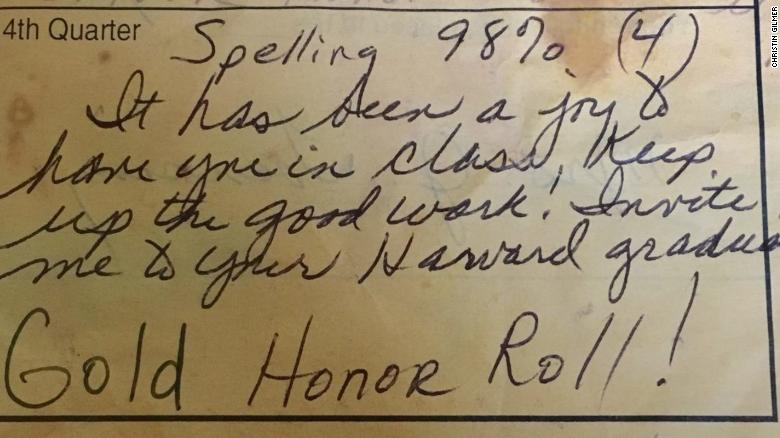 4th Quarter
Spelling 98% (4)
It has been a joy to
have you in class. Keep
up the good work! Invite
me to your Harvard gradua
Gold Honor Roll!
CHRISTIN GILMER